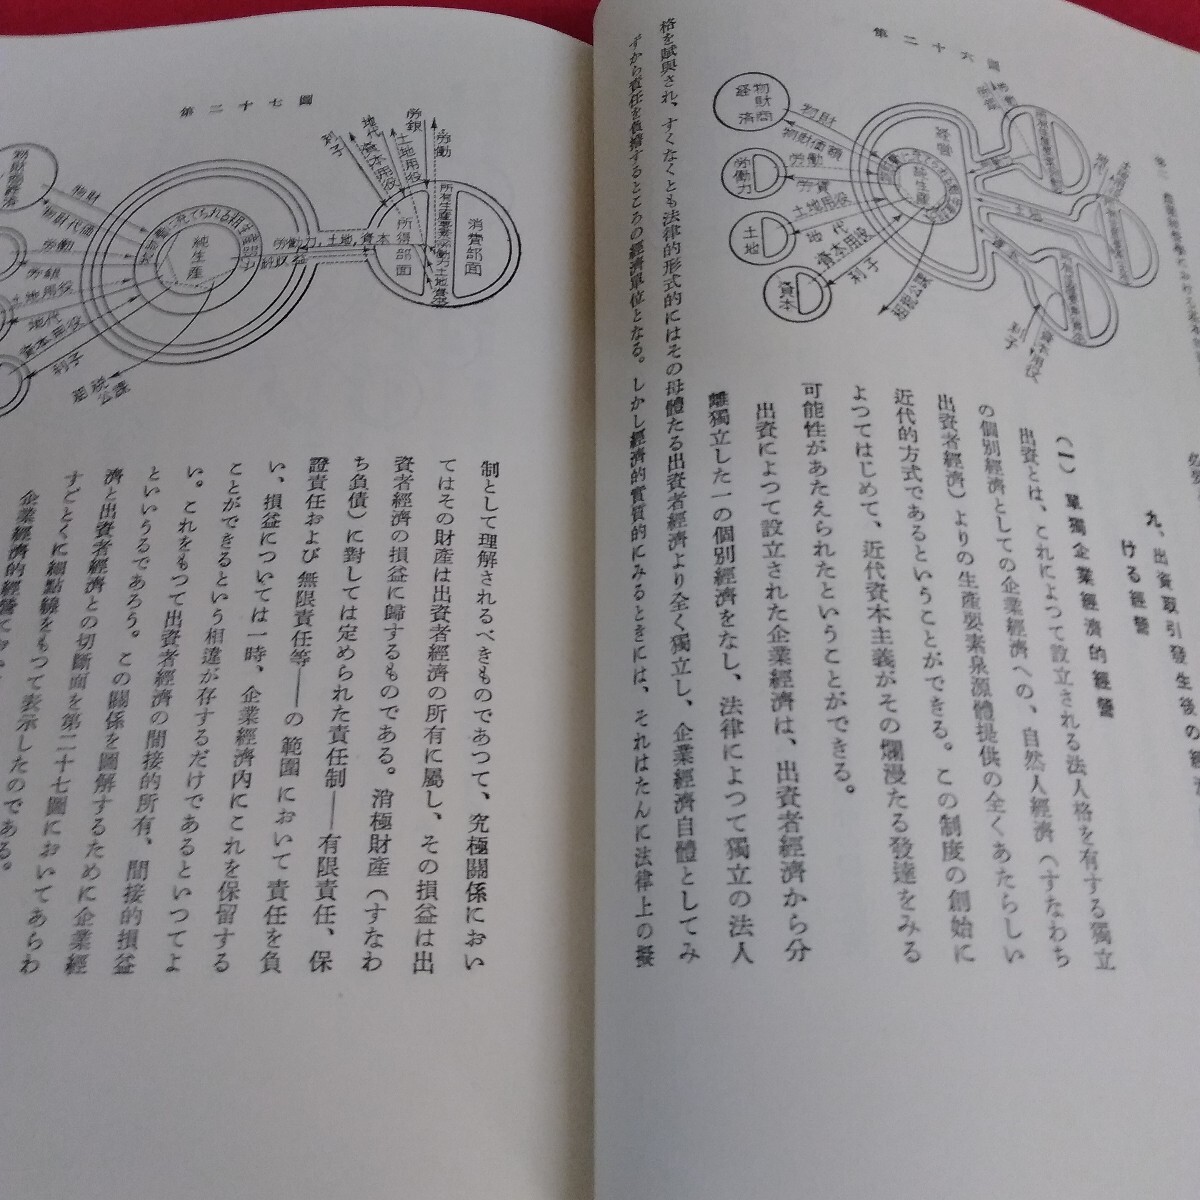 第二十六圖
物財商
經濟
物財
物財價額
勞働力
勞働
勞賃
土地用役
土地
地代
資本用役
資本
利子
經營
純生產
土地
資本
利子
資本用役
九、出資取引發生後の經
ける經營
(一) 單獨企業經濟的經營
出資とは、これによつて設立される法人格を有する獨立
の個別經濟としての企業經濟への、自然人經濟(すなわち
出資者經濟)よりの生產要素泉源體提供の全くあたらしい
近代的方式であるということができる。この制度の創始に
よつてはじめて、近代資本主義がその爛漫たる發達をみる
可能性があたえられたということができる。
出資によつて設立された企業經濟は、出資者經濟から分
離獨立した一の個別經濟をなし、法律によつて獨立の法人
格を賦與され、すくなくとも法律的形式的にはその母體たる出資者經濟より全く獨立し、企業經濟自體としてみ
ずから責任を負擔するところの經濟單位となる。しかし經濟的實質的にみるときには、それはたんに法律上の擬
第二十七圖
勞銀
勞働
土地用役
地代
資本用役
利子
消費部面
所得部面
勞働力、土地、資本
純收益
純生產
物財
物財代價
勞働
勞銀
土地用役
地代
資本用役
利子
租稅
公課
制として理解されるべきものであつて、究極關係におい
てはその財產は出資者經濟の所有に屬し、その損益は出
資者經濟の損益に歸するものである。消極財產(すなわ
ち負債)に對しては定められた責任制——有限責任、保
證責任および無限責任等——の範圍において責任を負
い、損益については一時、企業經濟内にこれを保留する
ことができるという相違が存するだけであるといつてよ
い。これをもつて出資者經濟の間接的所有、間接的損益
といいうるであろう。この關係を圖解するために企業經
濟と出資者經濟との切斷面を第二十七圖においてあらわ
すごとくに細點線をもつて表示したのである。
企業經濟的經營に